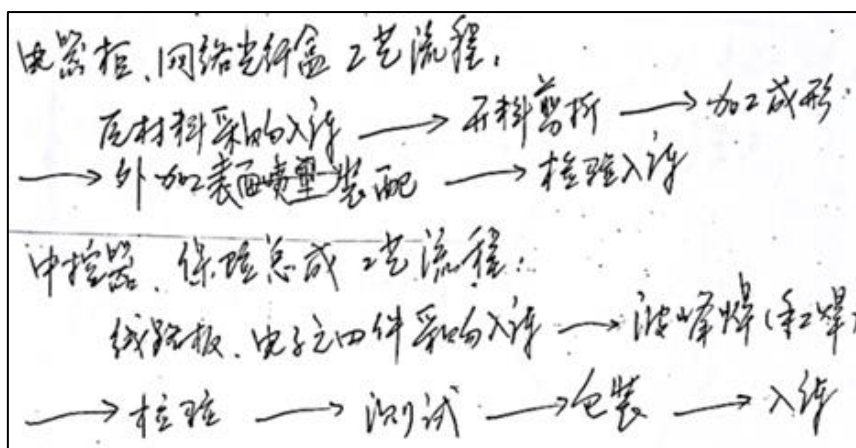 电器柜、网络光纤盒工艺流程:
原材料采购入库 → 开料剪折 → 加工成形
→ 外加工表面喷塑 装配 → 检验入库
中控器、保险总成工艺流程:
线路板、电子元四件采购入库 → 波峰焊(手工焊)
→ 检验 → 测试 → 包装 → 入库